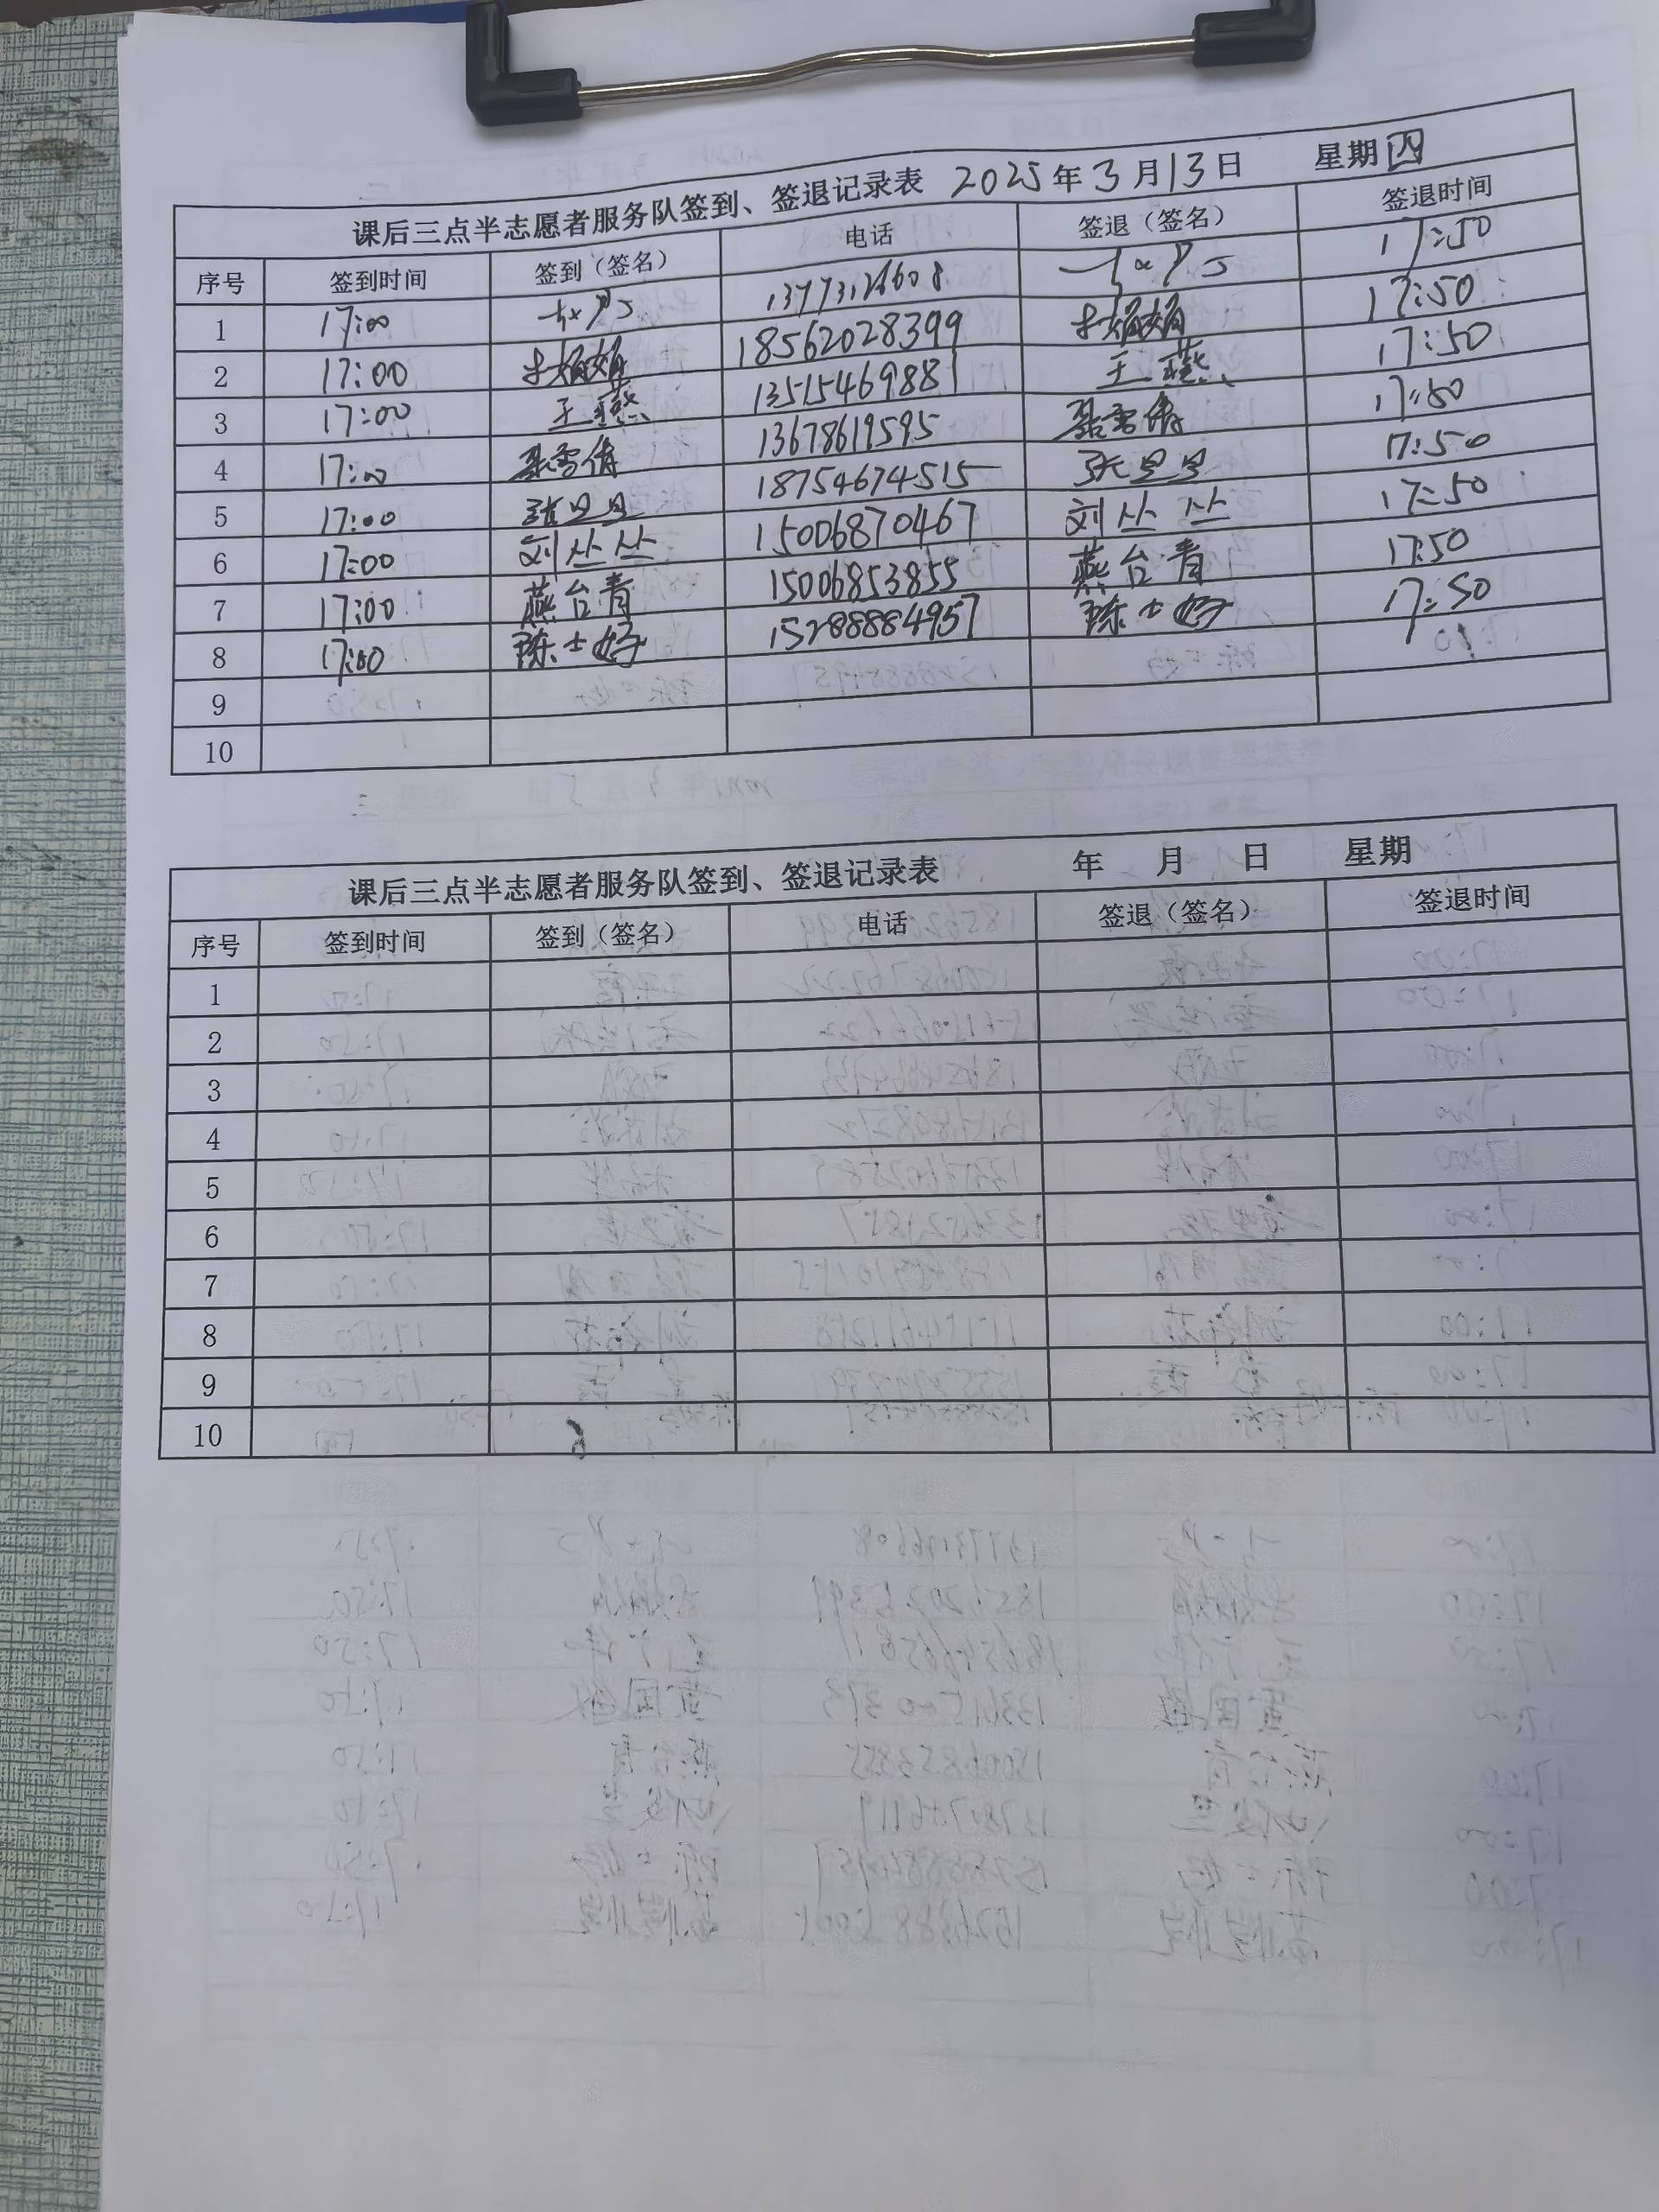 课后三点半志愿者服务队签到、签退记录表 2025年3月13日 星期四
序号 签到时间 签到（签名） 电话 签退（签名） 签退时间
1 17:00 13773126608 17:50
2 17:00 娟娟 18562028399 娟娟 17:50
3 17:00 王燕 13515469881 王燕 17:50
4 17:00 雪倩 13678619595 雪倩 17:50
5 17:00 张旦旦 18754674515 张旦旦 17:50
6 17:00 刘丛丛 15006870467 刘丛丛 17:50
7 17:00 燕台青 15006853855 燕台青 17:50
8 17:00 陈士好 15288884957 陈士好 17:50
9
10
课后三点半志愿者服务队签到、签退记录表 年 月 日 星期
序号 签到时间 签到（签名） 电话 签退（签名） 签退时间
1
2
3
4
5
6
7
8
9
10